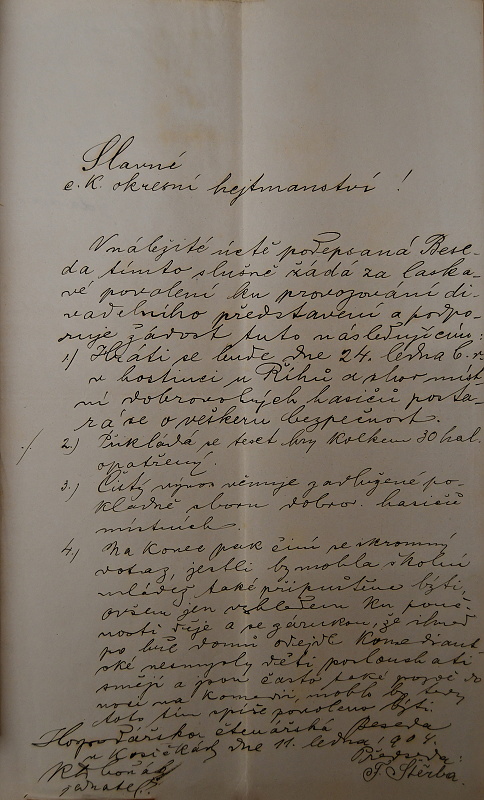 Slavné
c. k. okresní hejtmanství!
V náležité úctě podepsaná Bese-
da tímto slušně žádá za laska-
vé povolení ku provozování di-
vadelního představení a podpo-
ruje žádost tuto následujícím:
1.) Hráti se bude dne 24. ledna t. r.
v hostinci u Říhů a sbor míst-
ní dobrovolných hasičů posta-
rá se o veškeru bezpečnost.
2.) Přikládá se text hry kolkem 30 hal.
opatřený.
3.) Čistý výnos věnuje zadlužené po-
kladně sboru dobro. hasičů
místních.
4.) Na konec pak činí se skromný
dotaz, jestli by mohla školní
mládež také připuštěna býti,
ovšem jen vzhledem ku pouč-
nosti děje a se zárukou, že ihned
po hře domů odejde. Komediant-
ské nesmysly děti poslouchati
smějí a jsou často také pozdě do
noci na komedii, mohlo by tedy
toto tím spíše povoleno býti.
Hospodářsko čtenářská Beseda
v Kosičkách dne 11. ledna 1904.
Předseda:
jednatel F. Štěrba.